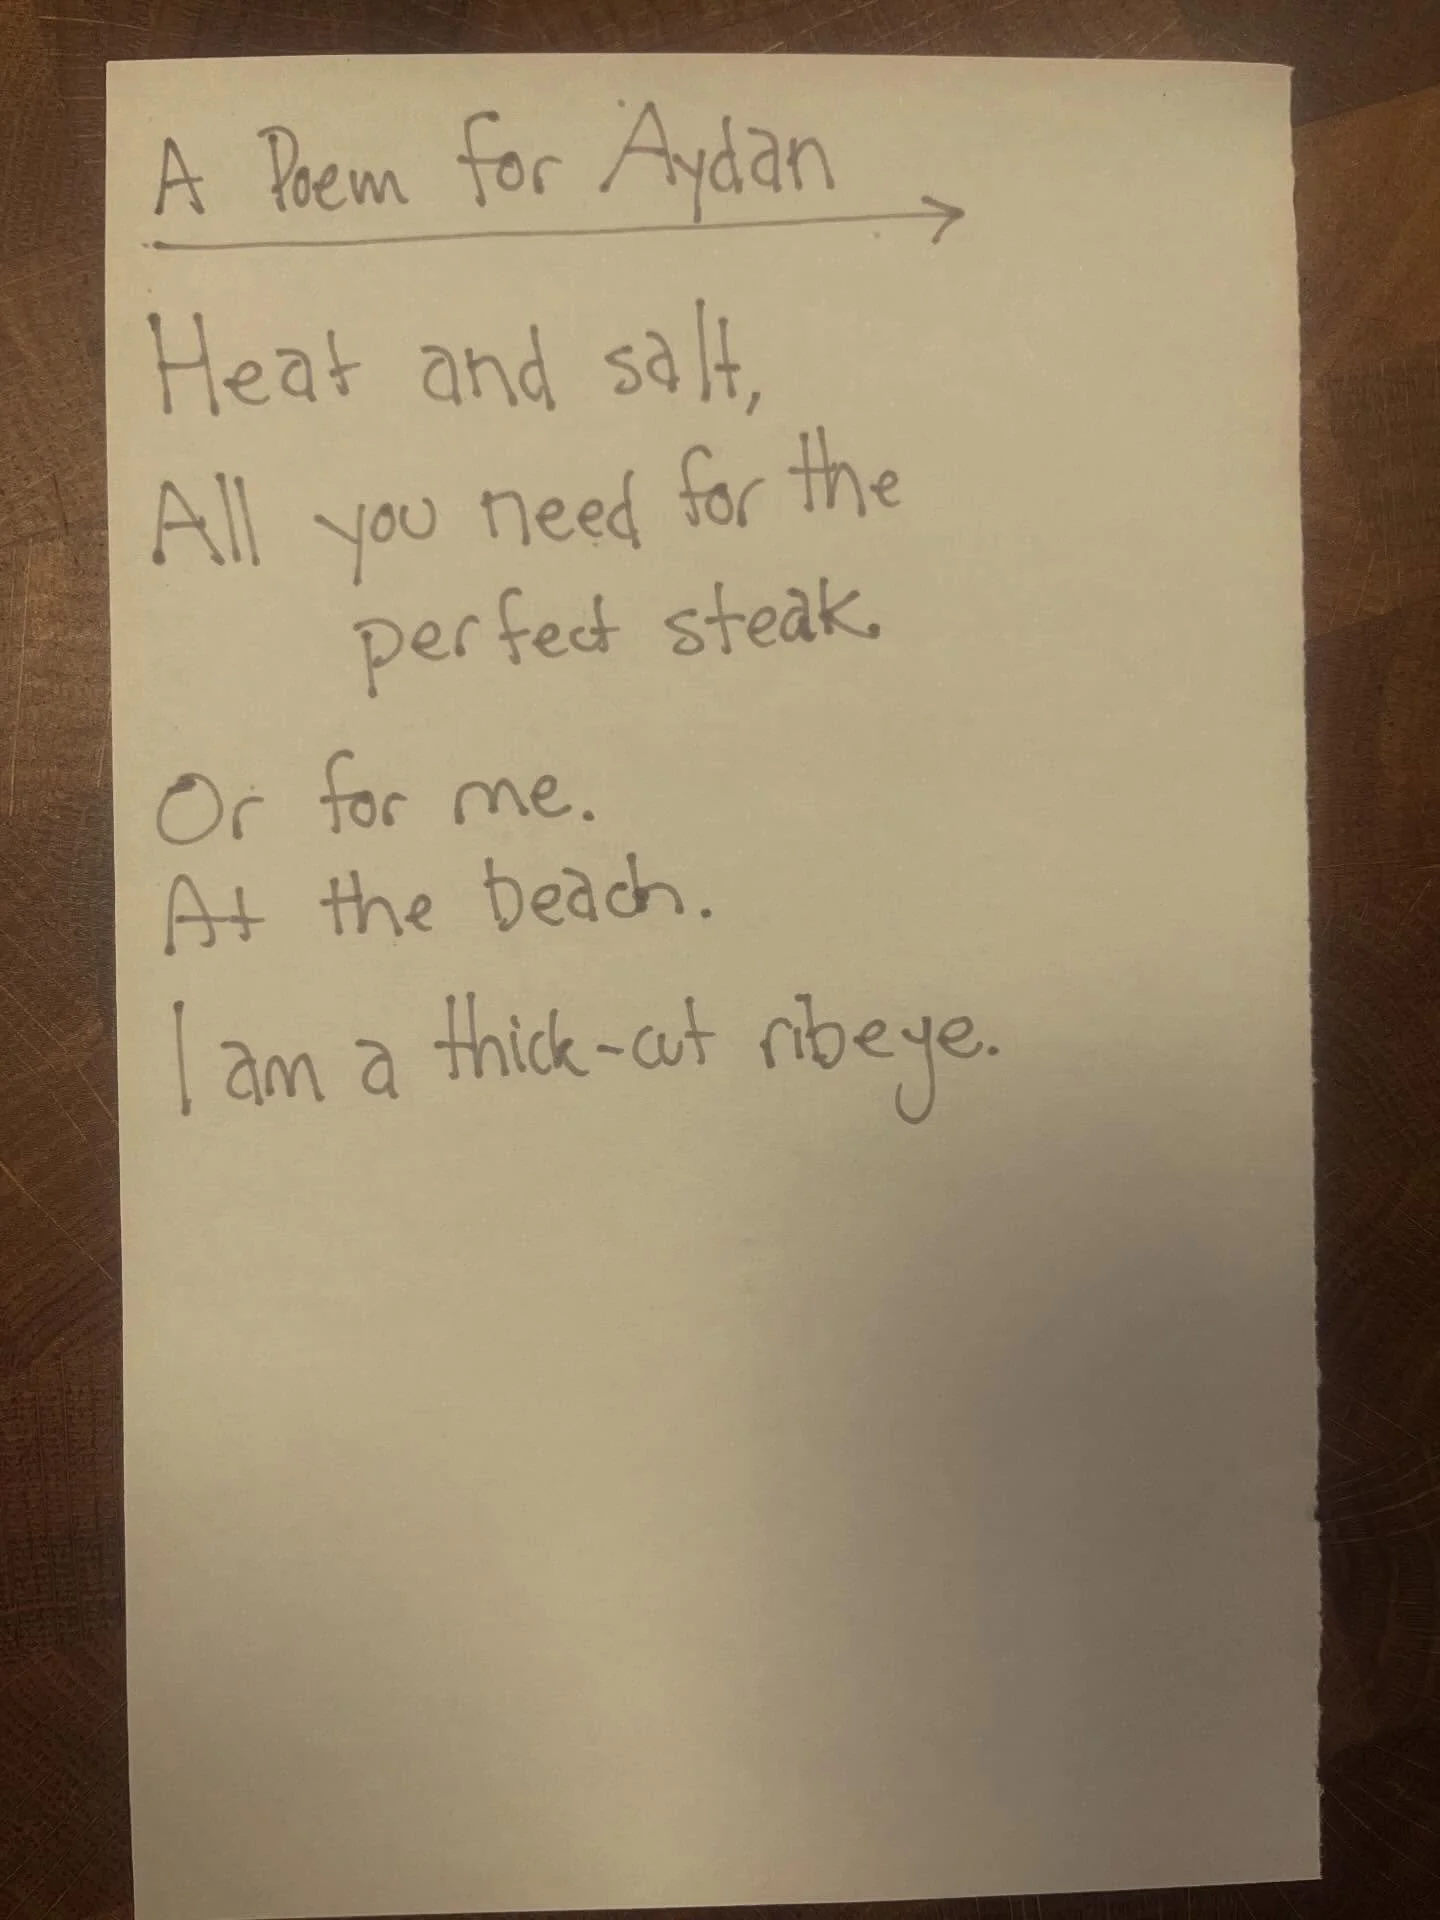 A Poem for Aydan
Heat and salt,
All you need for the
perfect steak.
Or for me.
At the beach.
I am a thick-cut ribeye.